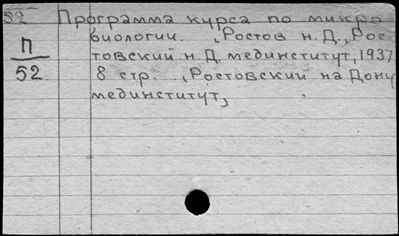 52 Программа курса по микро
биологии. , Ростов н. Д., Рос-
товский н. Д. мединститут, 1937
8 стр. , Ростовский на Дону
мединститут,
П
52